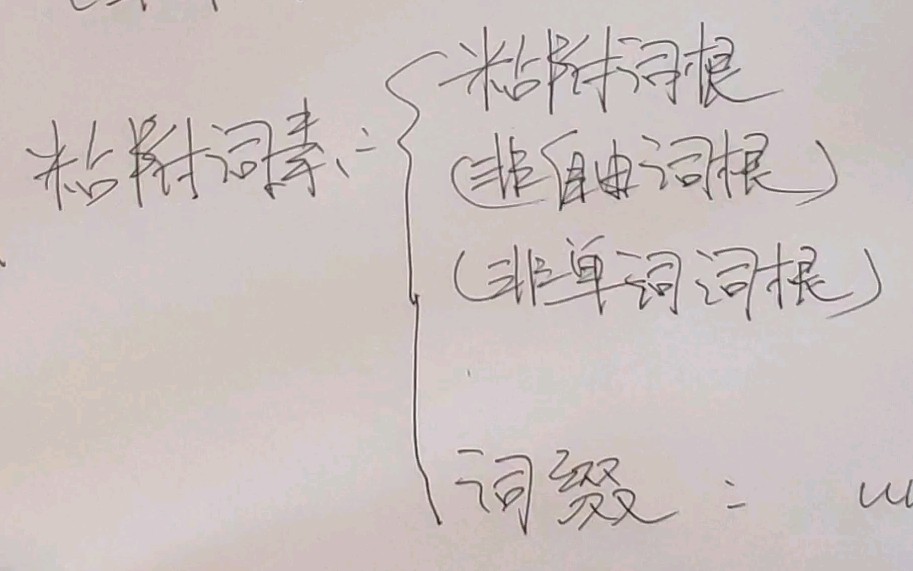 粘附词根
粘附词素:
(非自由词根)
(非单词词根)
词缀: